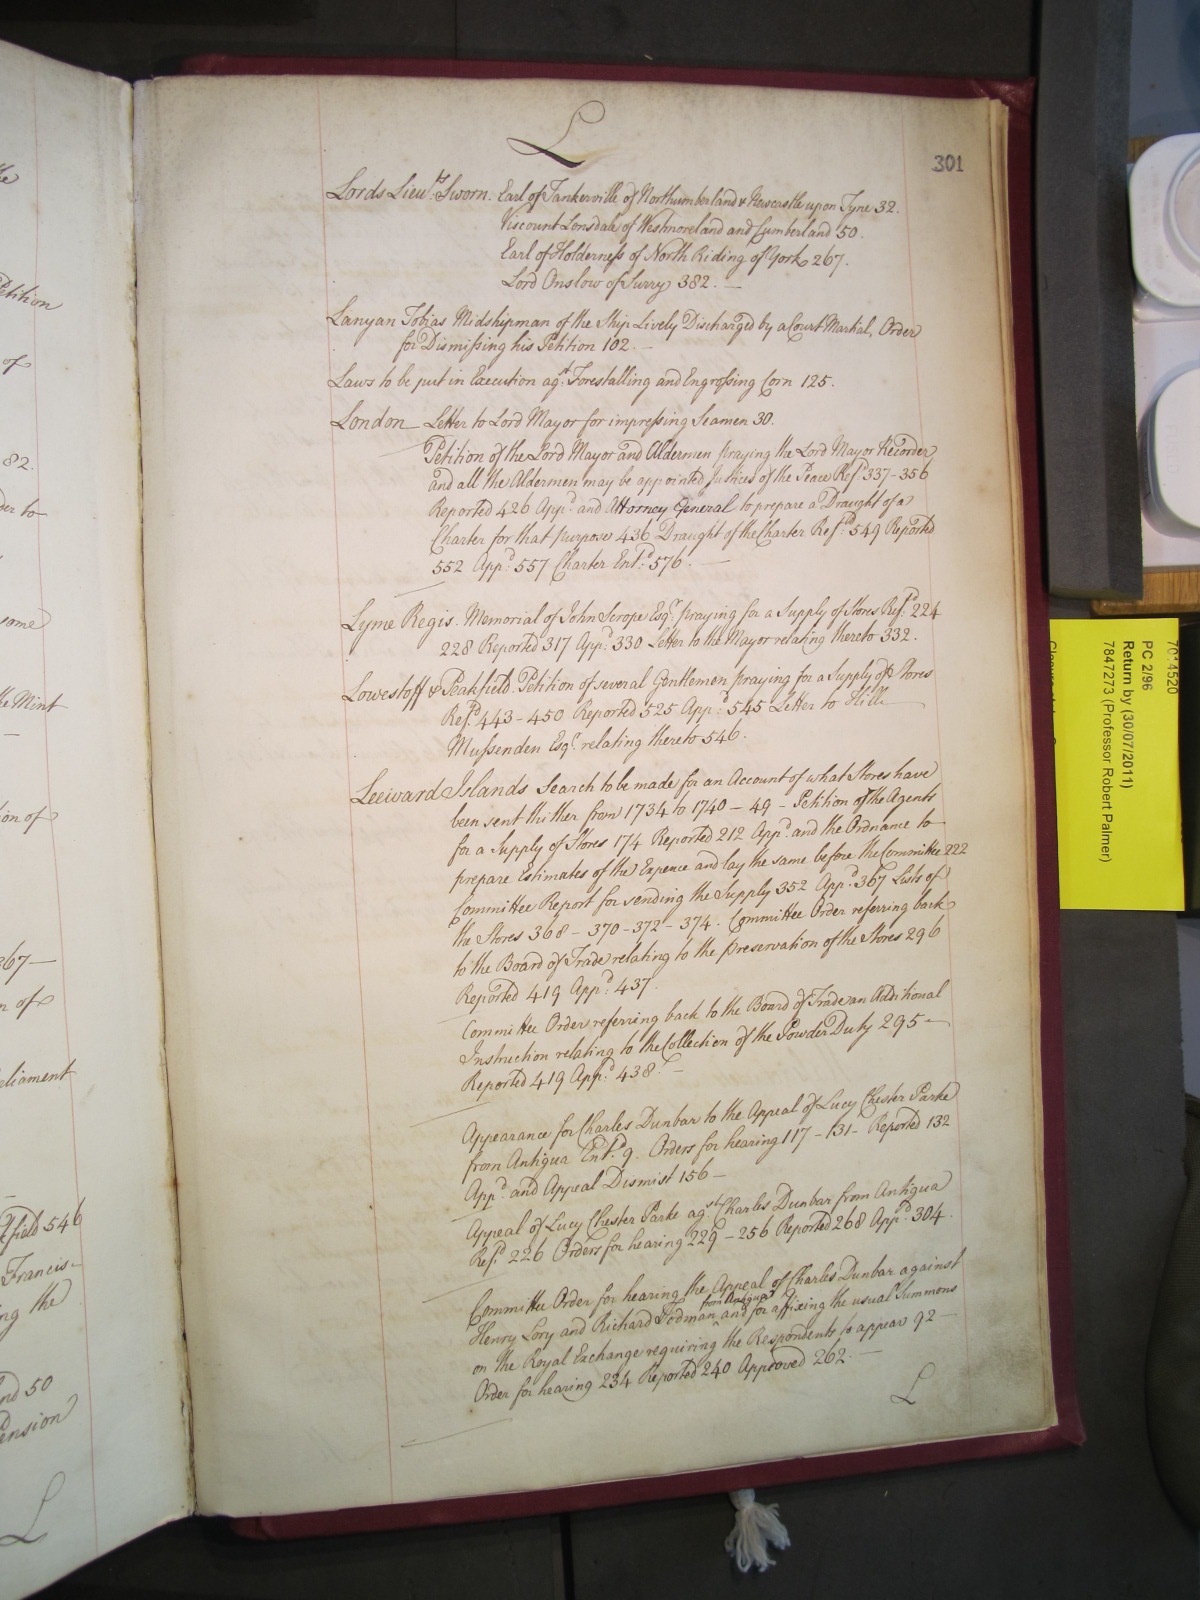 the
Petition
of
82.
der to
some
the Mint
ion of
367—
n of
rliament
kfield 546
Francis-
ing the
and 50
Pension
L
L
301
Lords Lieu.ts Sworn. Earl of Tankerville of Northumberland & Newcastle upon Tyne 32.
Viscount Lonsdale of Westmoreland and Cumberland 50.
Earl of Holderness of North Riding of York 267.
Lord Onslow of Surry 382. —
Lanyan Tobias Midshipman of the Ship Lively Discharged by a Court Martial, Order
for Dismissing his Petition 102. —
Laws to be put in Execution ag.st Forestalling and Engrossing Corn 125.
London — Letter to Lord Mayor for impressing Seamen 30.
Petition of the Lord Mayor and Aldermen praying the Lord Mayor Recorder
and all the Aldermen may be appointed Justices of the Peace Ref.d 337-356
Reported 426 App.d and Attorney General to prepare a Draught of a
Charter for that purpose 436 Draught of the Charter Ref.d 549 Reported
552 App.d 557 Charter Ent.d 576. —
Lyme Regis. Memorial of John Scrope Esq.r praying for a Supply of Stores Ref.d 224
228 Reported 317 App.d 330 Letter to the Mayor relating thereto 332.
Lowestoff & Peakfield. Petition of several Gentlemen praying for a Supply of Stores
Ref.d 443-450 Reported 525 App.d 545 Letter to Hill
Mussenden Esq.r relating thereto 546.
Leeward Islands Search to be made for an Account of what Stores have
been sent thither from 1734 to 1740 - 49 - Petition of the Agents
for a Supply of Stores 174 Reported 212 App.d and the Ordnance to
prepare Estimates of the Expence and lay the same before the Committee 222
Committee Report for sending the Supply 352 App.d 367 Lists of
the Stores 368 - 370 - 372 - 374. Committee Order referring back
to the Board of Trade relating to the preservation of the Stores 296
Reported 419 App.d 437.
Committee Order referring back to the Board of Trade an Additional
Instruction relating to the Collection of the Powder Duty 295 —
Reported 419 App.d 438. —
Appearance for Charles Dunbar to the Appeal of Lucy Chester Parke
from Antigua Ent.d 9. Orders for hearing 117 - 131 - Reported 132
App.d and Appeal Dismist 156 —
Appeal of Lucy Chester Parke ag.st Charles Dunbar from Antigua
Ref.d 226 Orders for hearing 229 - 256 Reported 268 App.d 304.
Committee Order for hearing the Appeal of Charles Dunbar against
from Antigua
Henry Lory and Richard Todman ^ and for affixing the usual Summons
on the Royal Exchange requiring the Respondents to appear 92 —
Order for hearing 234 Reported 240 Approved 262. —
L
PC 2/96
Return by (30/07/2011)
7847273 (Professor Robert Palmer)